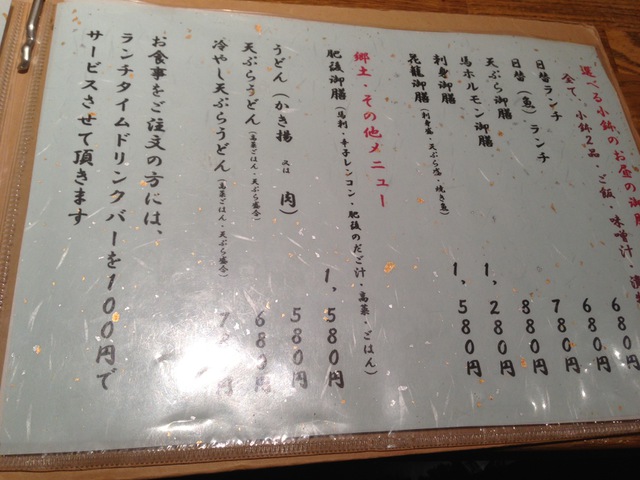 選べる小鉢のお昼の御
全て、小鉢2品・ご飯・味噌汁・漬
日替ランチ 680円
日替(魚)ランチ 680円
天ぷら御膳 780円
馬ホルモン御膳 880円
刺身御膳 1,280円
花籠御膳(刺身盛・天ぷら盛・焼き魚) 1,580円
郷土・その他メニュー
肥後御膳(馬刺・辛子レンコン・肥後のだご汁・高菜・ごはん) 1,580円
うどん(かき揚 又は 肉) 580円
天ぷらうどん(高菜ごはん・天ぷら盛合) 680円
冷やし天ぷらうどん(高菜ごはん・天ぷら盛合)
お食事をご注文の方には、
ランチタイムドリンクバーを100円で
サービスさせて頂きます